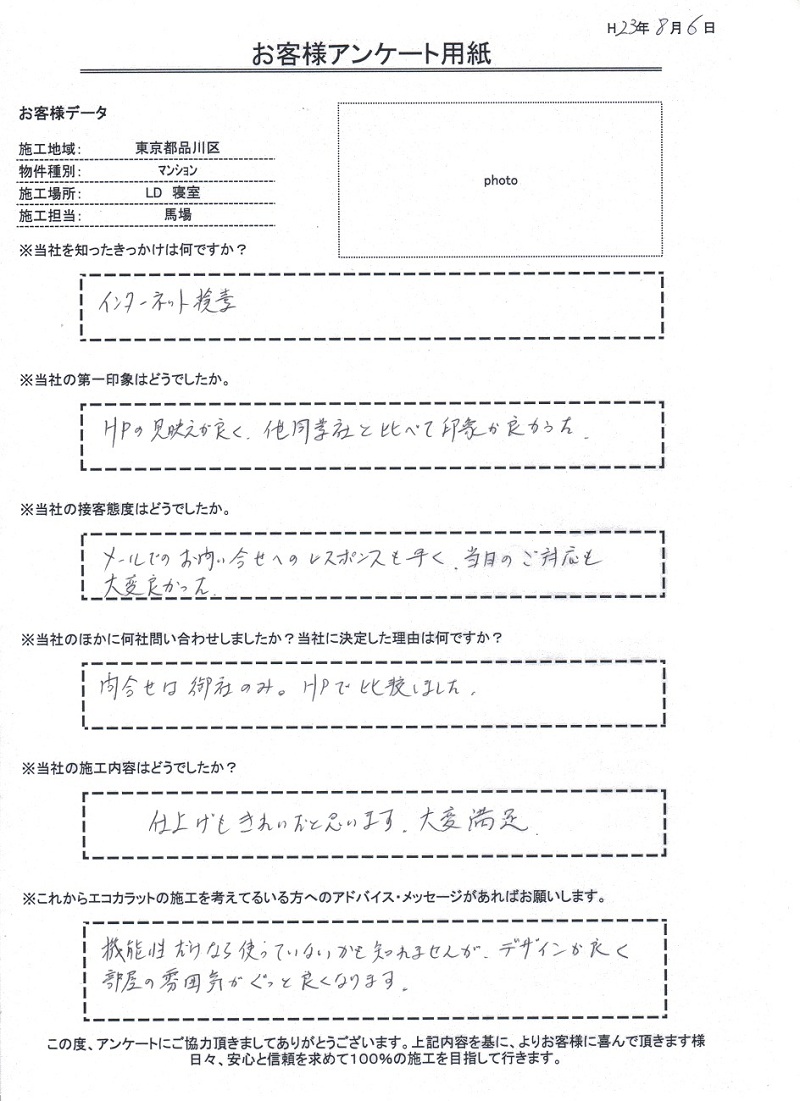 H23年8月6日
お客様アンケート用紙
お客様データ
施工地域： 東京都品川区
物件種別： マンション
施工場所： LD 寝室
施工担当： 馬場
photo
※当社を知ったきっかけは何ですか？
インターネット検索
※当社の第一印象はどうでしたか。
HPの見映えが良く、他同業社と比べて印象が良かった。
※当社の接客態度はどうでしたか。
メールでのお問い合せへのレスポンスも早く、当日のご対応も
大変良かった。
※当社のほかに何社問い合わせしましたか？当社に決定した理由は何ですか？
問合せは御社のみ。HPで比較しました。
※当社の施工内容はどうでしたか？
仕上げもきれいだと思います。大変満足。
※これからエコカラットの施工を考えてるいる方へのアドバイス・メッセージがあればお願いします。
機能性だけなら使っていないかも知れませんが、デザインが良く
部屋の雰囲気がぐっと良くなります。
この度、アンケートにご協力頂きましてありがとうございます。上記内容を基に、よりお客様に喜んで頂きます様
日々、安心と信頼を求めて100%の施工を目指して行きます。